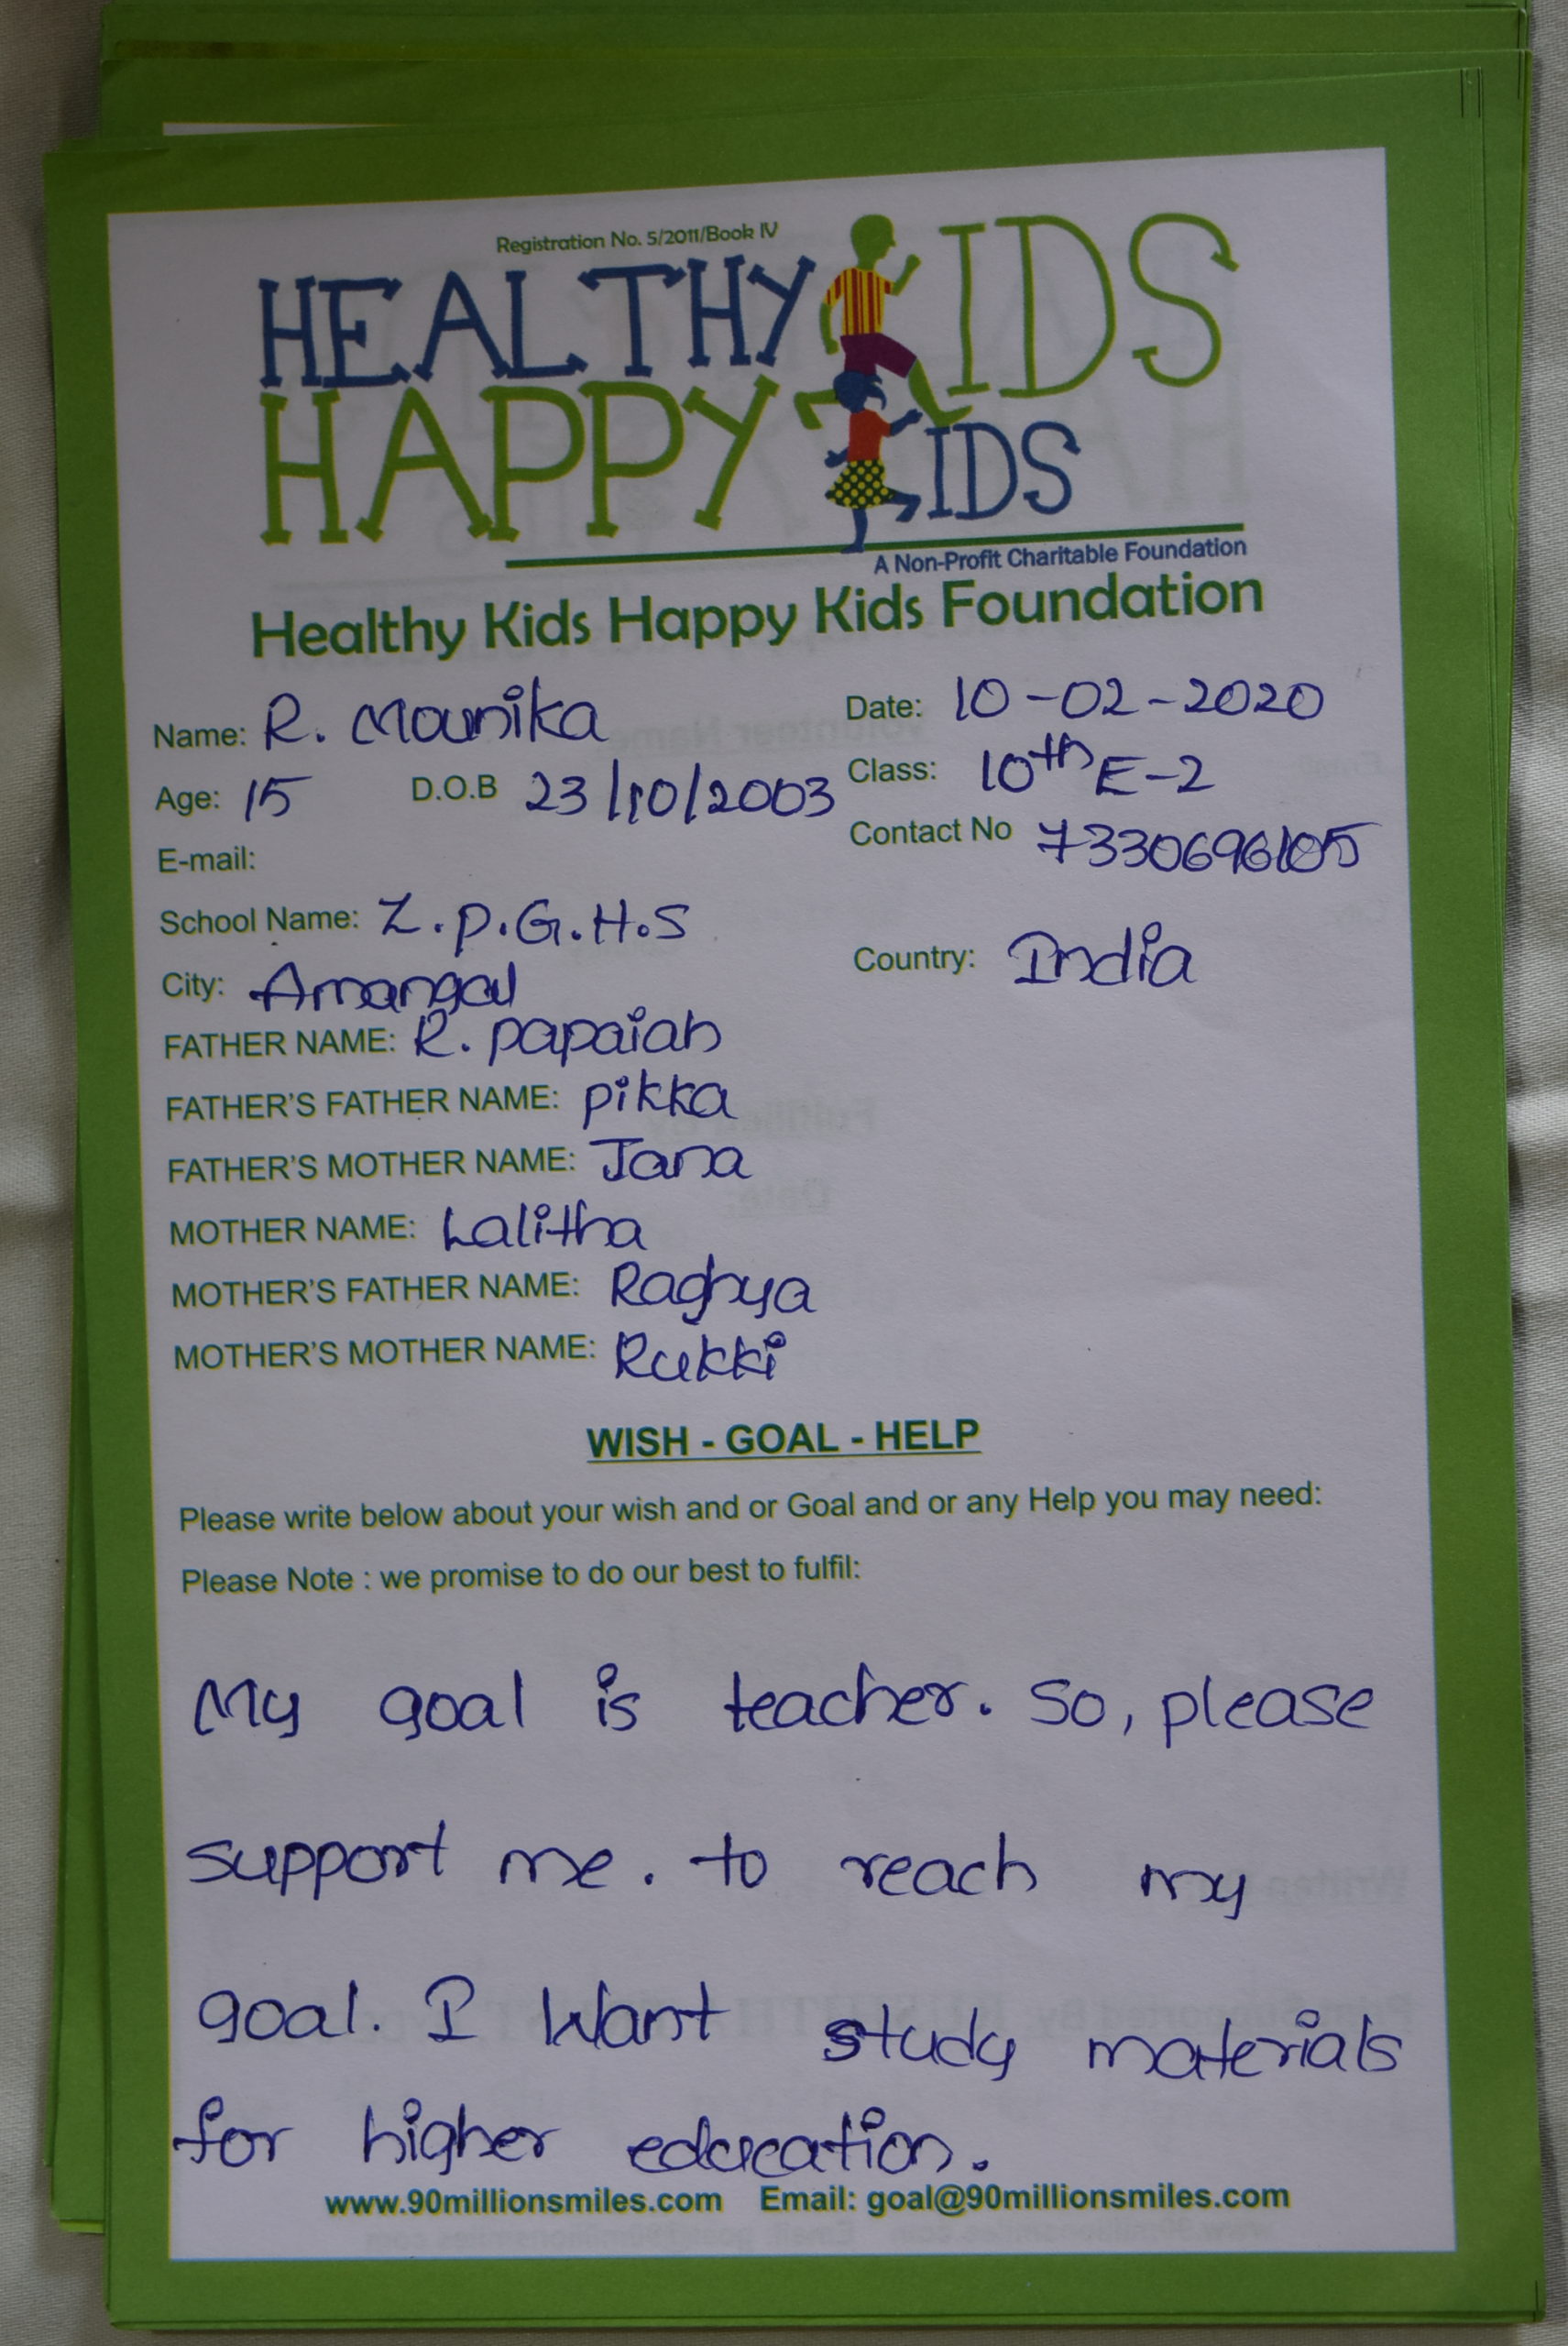 Registration No. 5/2011/Book IV
HEALTHY KIDS
HAPPY KIDS
A Non-Profit Charitable Foundation
Healthy Kids Happy Kids Foundation
Name: R. Mounika
Date: 10-02-2020
Age: 15 D.O.B 23/10/2003
Class: 10th E-2
E-mail:
Contact No 7330696105
School Name: Z.P.G.H.S
City: Amangal
Country: India
FATHER NAME: R. papaiah
FATHER'S FATHER NAME: pikka
FATHER'S MOTHER NAME: Jana
MOTHER NAME: Lalitha
MOTHER'S FATHER NAME: Raghya
MOTHER'S MOTHER NAME: Rukki
WISH - GOAL - HELP
Please write below about your wish and or Goal and or any Help you may need:
Please Note : we promise to do our best to fulfil:
My goal is teacher. So, please
support me. to reach my
goal. I Want study materials
for higher education.
www.90millionsmiles.com Email: goal@90millionsmiles.com